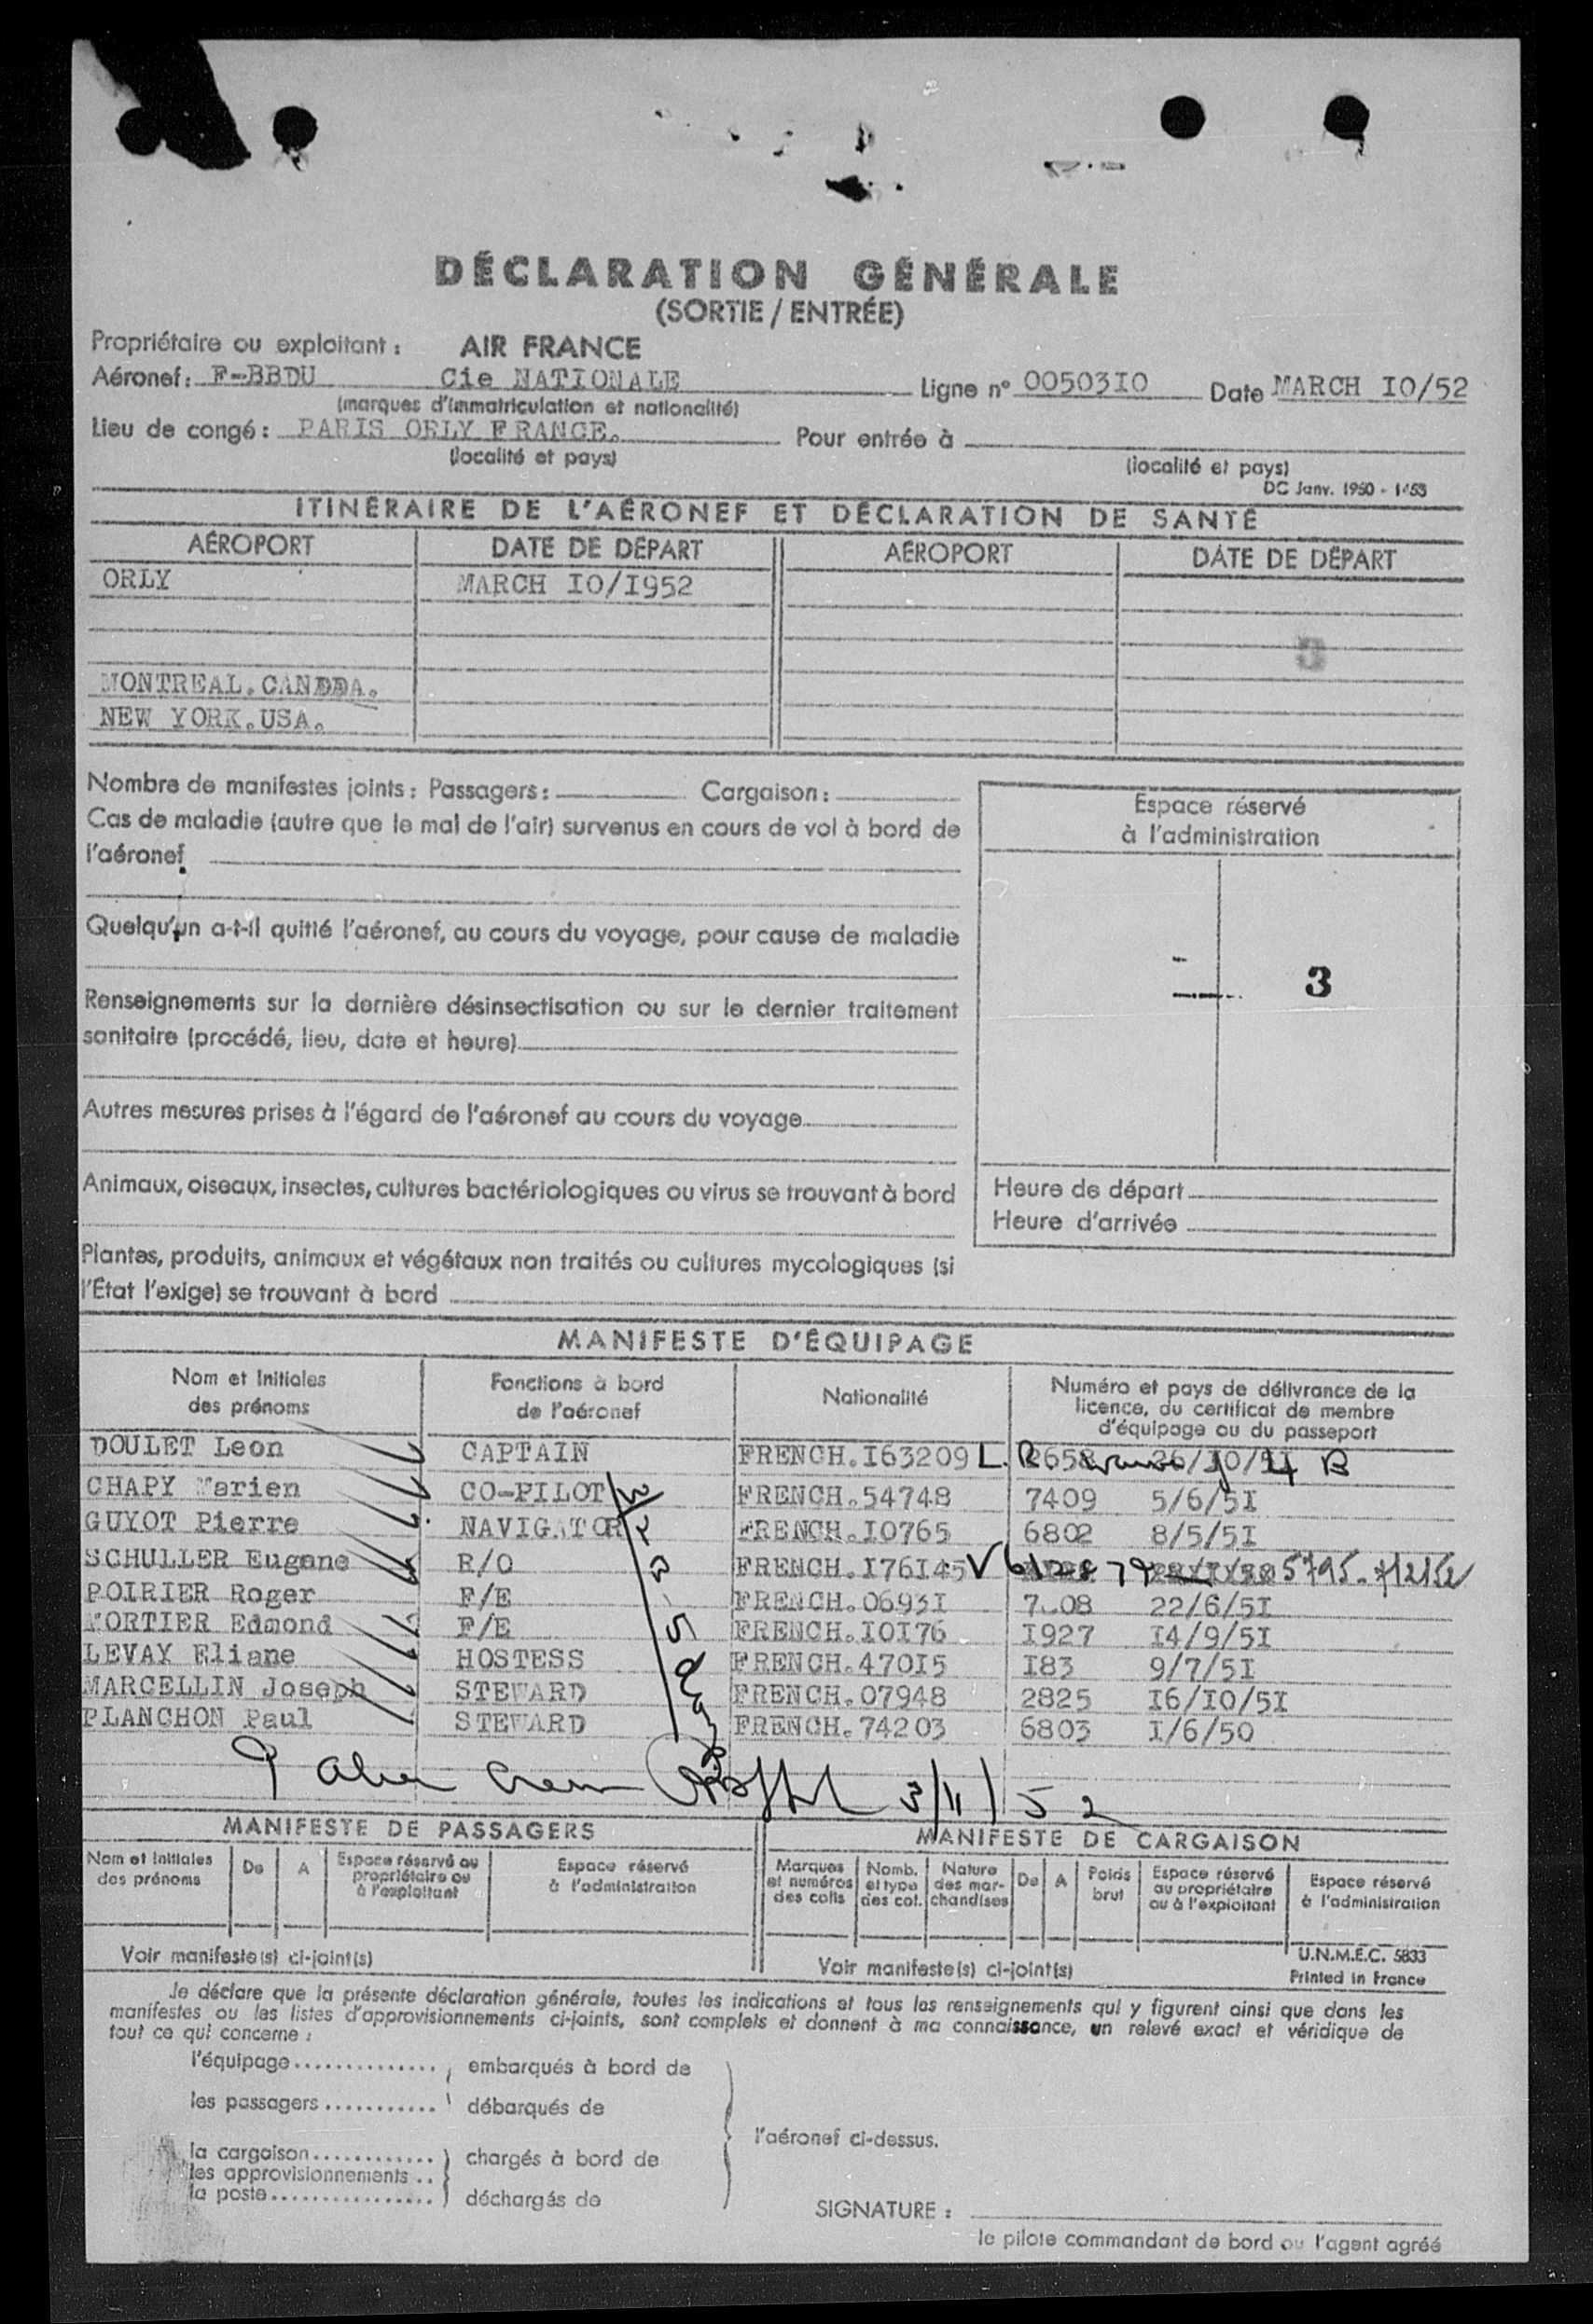 DÉCLARATION GÉNÉRALE
(SORTIE / ENTRÉE)
Propriétaire ou exploitant : AIR FRANCE
Aéronef : F-BBDU Cie NATIONALE Ligne n° 0050310 Date MARCH IO/52
(marques d'immatriculation et nationalité)
Lieu de congé : PARIS ORLY FRANCE. Pour entrée à
(localité et pays) (localité et pays)
DC Janv. 1950 - 1453
ITINÉRAIRE DE L'AÉRONEF ET DÉCLARATION DE SANTÉ
AÉROPORT DATE DE DÉPART AÉROPORT DATE DE DÉPART
ORLY MARCH IO/I952
3
MONTREAL.CANDDA.
NEW YORK.USA.
Nombre de manifestes joints : Passagers : Cargaison :
Cas de maladie (autre que le mal de l'air) survenus en cours de vol à bord de
l'aéronef
Quelqu'un a-t-il quitté l'aéronef, au cours du voyage, pour cause de maladie
Renseignements sur la dernière désinsectisation ou sur le dernier traitement
sanitaire (procédé, lieu, date et heure)
Autres mesures prises à l'égard de l'aéronef au cours du voyage
Animaux, oiseaux, insectes, cultures bactériologiques ou virus se trouvant à bord
Plantes, produits, animaux et végétaux non traités ou cultures mycologiques (si
l'État l'exige) se trouvant à bord
Espace réservé
à l'administration
3
Heure de départ
Heure d'arrivée
MANIFESTE D'ÉQUIPAGE
Nom et Initiales
des prénoms
Fonctions à bord
de l'aéronef
Nationalité
Numéro et pays de délivrance de la
licence, du certificat de membre
d'équipage ou du passeport
DOULET Leon CAPTAIN FRENCH.I63209 L.
CHAPY Marien CO-PILOT FRENCH.54748 7409 5/6/5I
GUYOT Pierre NAVIGATOR FRENCH.IO765 6802 8/5/5I
SCHULLER Eugene R/O FRENCH.I76I45
POIRIER Roger F/E FRENCH.0693I 22/6/5I
MORTIER Edmond F/E FRENCH.IOI76 I927 I4/9/5I
LEVAY Eliane HOSTESS FRENCH.470I5 I83 9/7/5I
MARCELLIN Joseph STEWARD FRENCH.07948 2825 I6/IO/5I
PLANCHON Paul STEWARD FRENCH.74203 6803 I/6/50
9 alien crem 3/11/52
MANIFESTE DE PASSAGERS MANIFESTE DE CARGAISON
Nom et Initiales
des prénoms
De
A
Espace réservé au
propriétaire ou
à l'exploitant
Espace réservé
à l'administration
Marques
et numéros
des colis
Nomb.
et type
des col.
Nature
des mar-
chandises
De
A
Poids
brut
Espace réservé
au propriétaire
ou à l'exploitant
Espace réservé
à l'administration
Voir manifeste(s) ci-joint(s) Voir manifeste(s) ci-joint(s)
U.N.M.E.C. 5833
Printed in France
Je déclare que la présente déclaration générale, toutes les indications et tous les renseignements qui y figurent ainsi que dans les
manifestes ou les listes d'approvisionnements ci-joints, sont complets et donnent à ma connaissance, un relevé exact et véridique de
tout ce qui concerne :
l'équipage.............. embarqués à bord de
les passagers........... débarqués de
l'aéronef ci-dessus.
la cargaison............ chargés à bord de
les approvisionnements ..
la poste................ déchargés de
SIGNATURE :
le pilote commandant de bord ou l'agent agréé